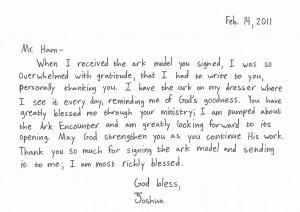 Feb. 14, 2011
Mr. Ham-
When I received the ark model you signed, I was so
overwhelmed with gratitude, that I had to write to you,
personally thanking you. I have the ark on my dresser where
I see it every day, reminding me of God's goodness. You have
greatly blessed me through your ministry; I am pumped about
the Ark Encounter and am greatly looking forward to its
opening. May God strengthen you as you continue His work.
Thank you so much for signing the ark model and sending
it to me; I am most richly blessed.
God bless,
Joshua